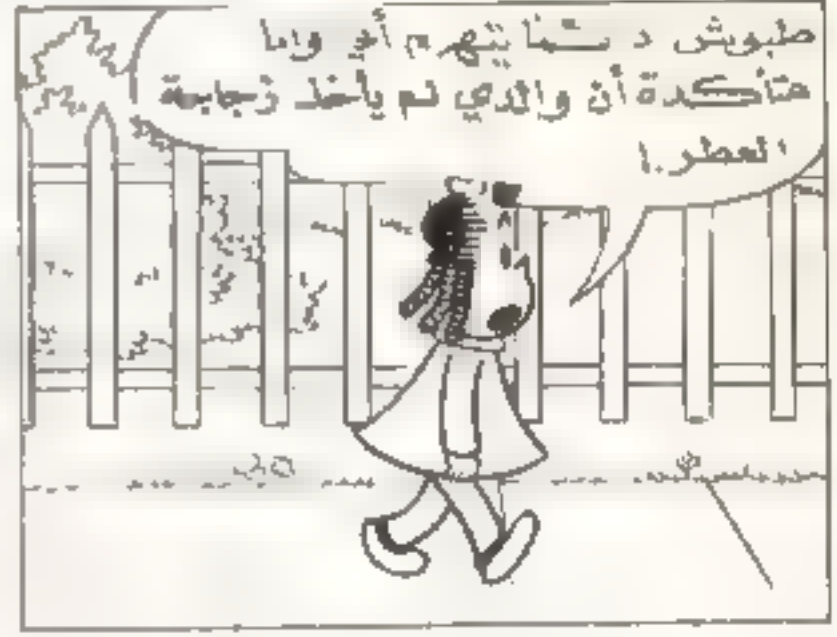 طبوش د يتهم أبي وانا
متأكدة أن والدي لم يأخذ زجاجة
العطر.!